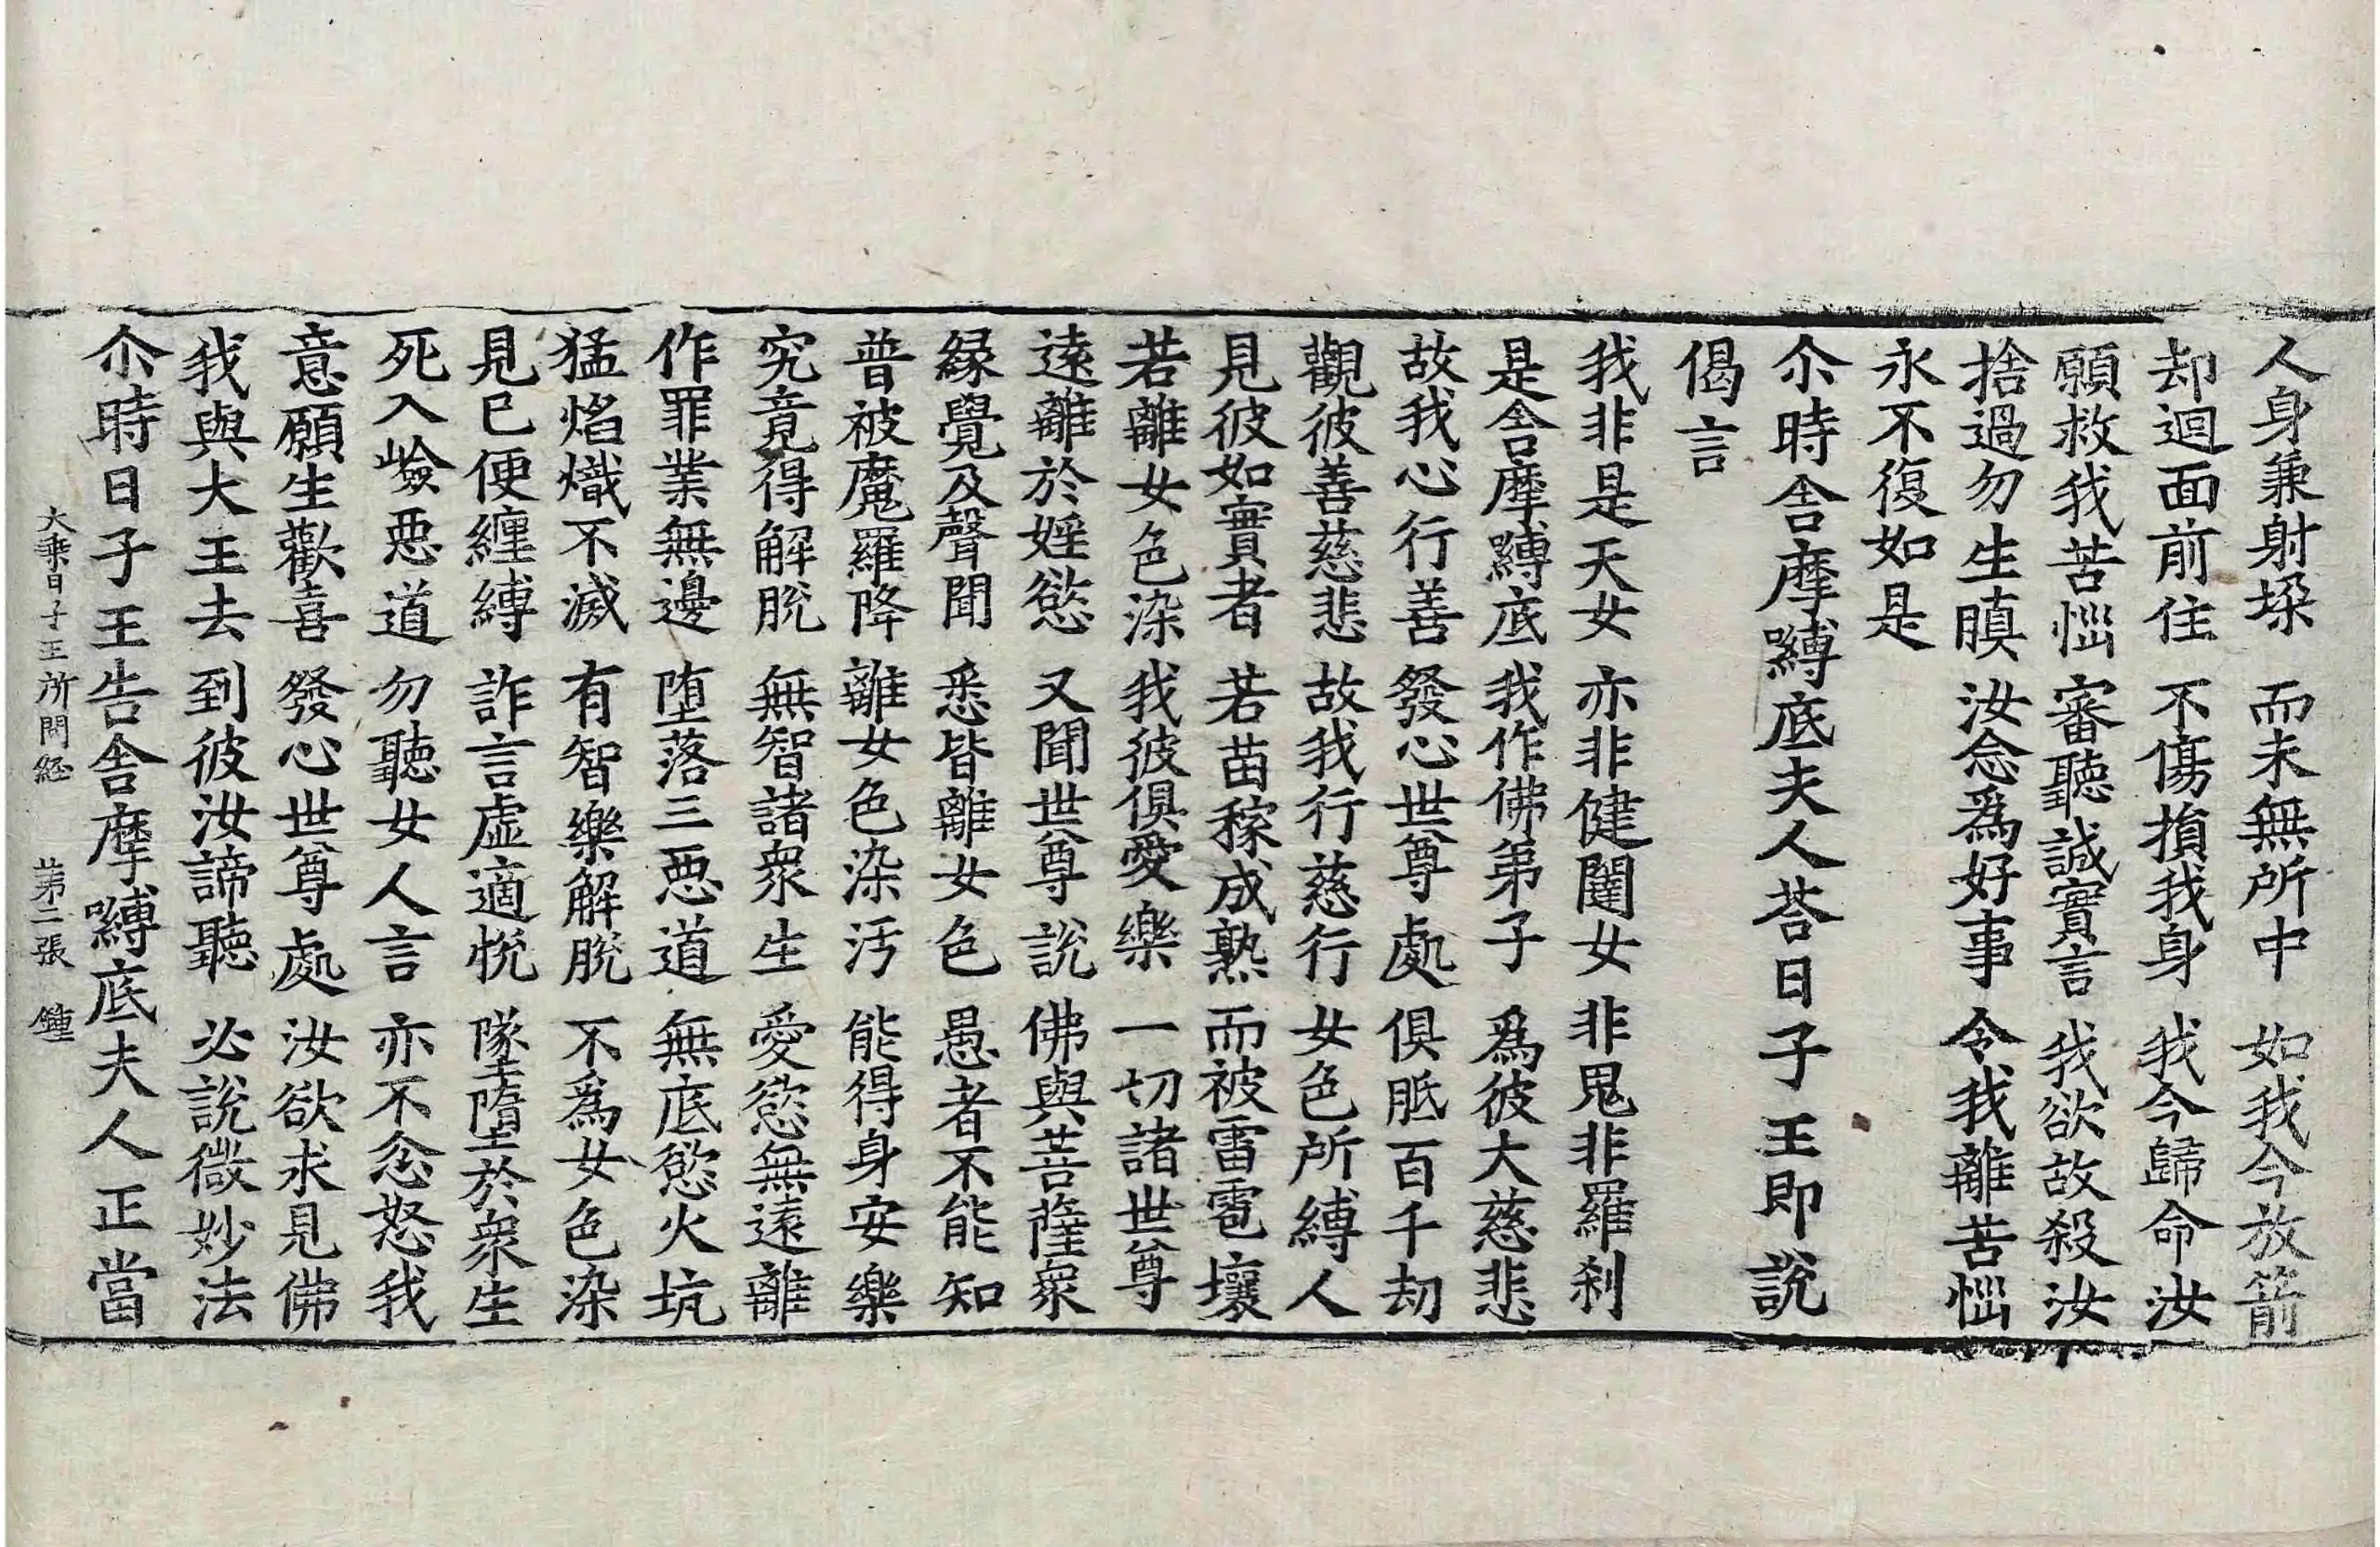 人身兼射垛 而未無所中 如我今放箭
却迴面前住 不傷損我身 我今歸命汝
願救我苦惱 審聽誠實言 我欲故殺汝
捨過勿生瞋 汝念爲好事 令我離苦惱
永不復如是
尒時舍摩嚩底夫人荅日子王即說
偈言
我非是天女 亦非健闥女 非鬼非羅刹
是舍摩嚩底 我作佛弟子 爲彼大慈悲
故我心行善 發心世尊處 俱胝百千劫
觀彼善慈悲 故我行慈行 女色所縛人
見彼如實者 若苗稼成熟 而被雷雹壞
若離女色染 我彼俱愛樂 一切諸世尊
遠離於婬慾 又聞世尊說 佛與菩薩衆
緣覺及聲聞 悉皆離女色 愚者不能知
普被魔羅降 離女色染汚 能得身安樂
究竟得解脫 無智諸衆生 愛慾無遠離
作罪業無邊 堕落三惡道 無底慾火坑
猛焰熾不滅 有智樂解脫 不爲女色染
見已便纏縛 詐言虛適悅 墜墮於衆生
死入嶮惡道 勿聽女人言 亦不忿怒我
意願生歡喜 發心世尊處 汝欲求見佛
我與大王去 到彼汝諦聽 必說微妙法
尒時日子王告舍摩嚩底夫人正當
大乘日子王所問経 第二張 鍾